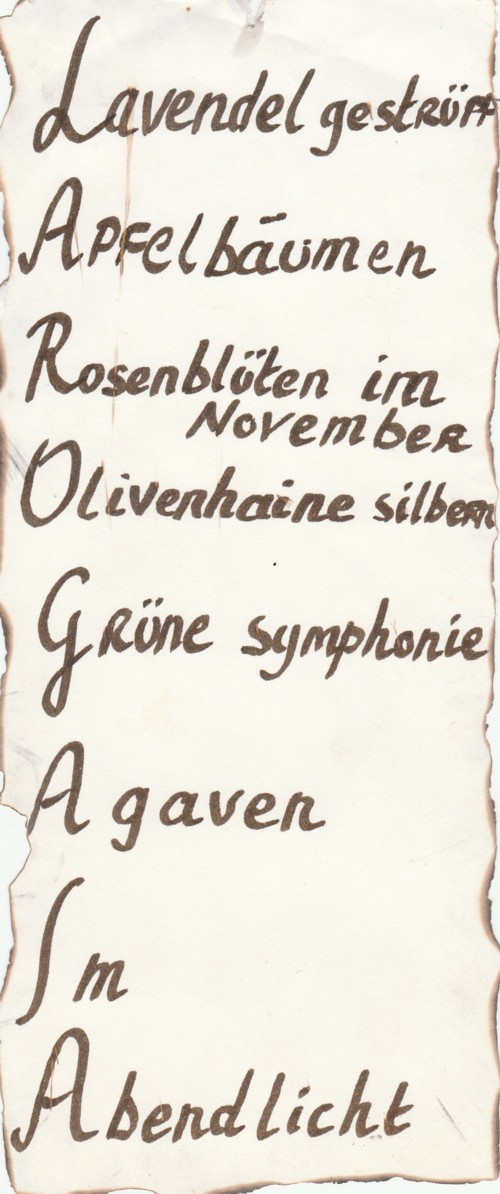 Lavendel geströff
Apfelbäumen
Rosenblüten im
November
Olivenhaine silbern
Grüne symphonie
Agaven
Im
Abendlicht